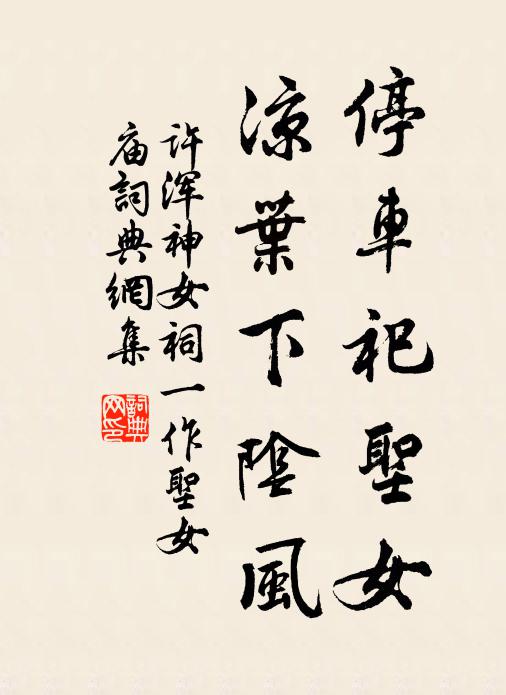 停車祀聖女
涼葉下陰風
许浑神女祠一作聖女
庙詞典網集
詞典网印